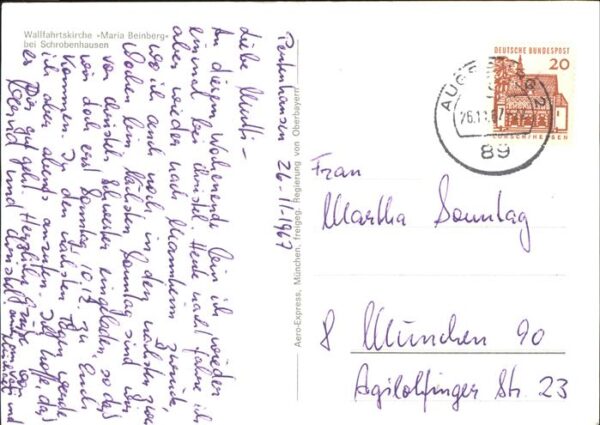 Wallfahrtskirche »Maria Beinberg«
bei Schrobenhausen
Aero-Express, München, freigeg. Regierung von Oberbayern
DEUTSCHE BUNDESPOST
20
LORSCH/HESSEN
AUGSBURG 2
26.11.67
89
26-11-1967
Liebe Mutti -
An diesem Wochenende bin ich wieder
einmal bei Christel. Heute nacht fahre ich
aber wieder nach Mannheim zurück,
wo ich auch noch in den nächsten zwei
Wochen bin. Nächsten Sonntag sind wir
von Schwester eingeladen, so daß
wir doch erst Sonntag 10.12. zu Euch
kommen. In den nächsten Tagen werde
ich aber abends anrufen. Ich hoffe, daß
es Dir gut geht. Herzliche Grüße von
Bernd und Christel
Frau
Martha Sonntag
8 München 90
Agilolfinger Str. 23